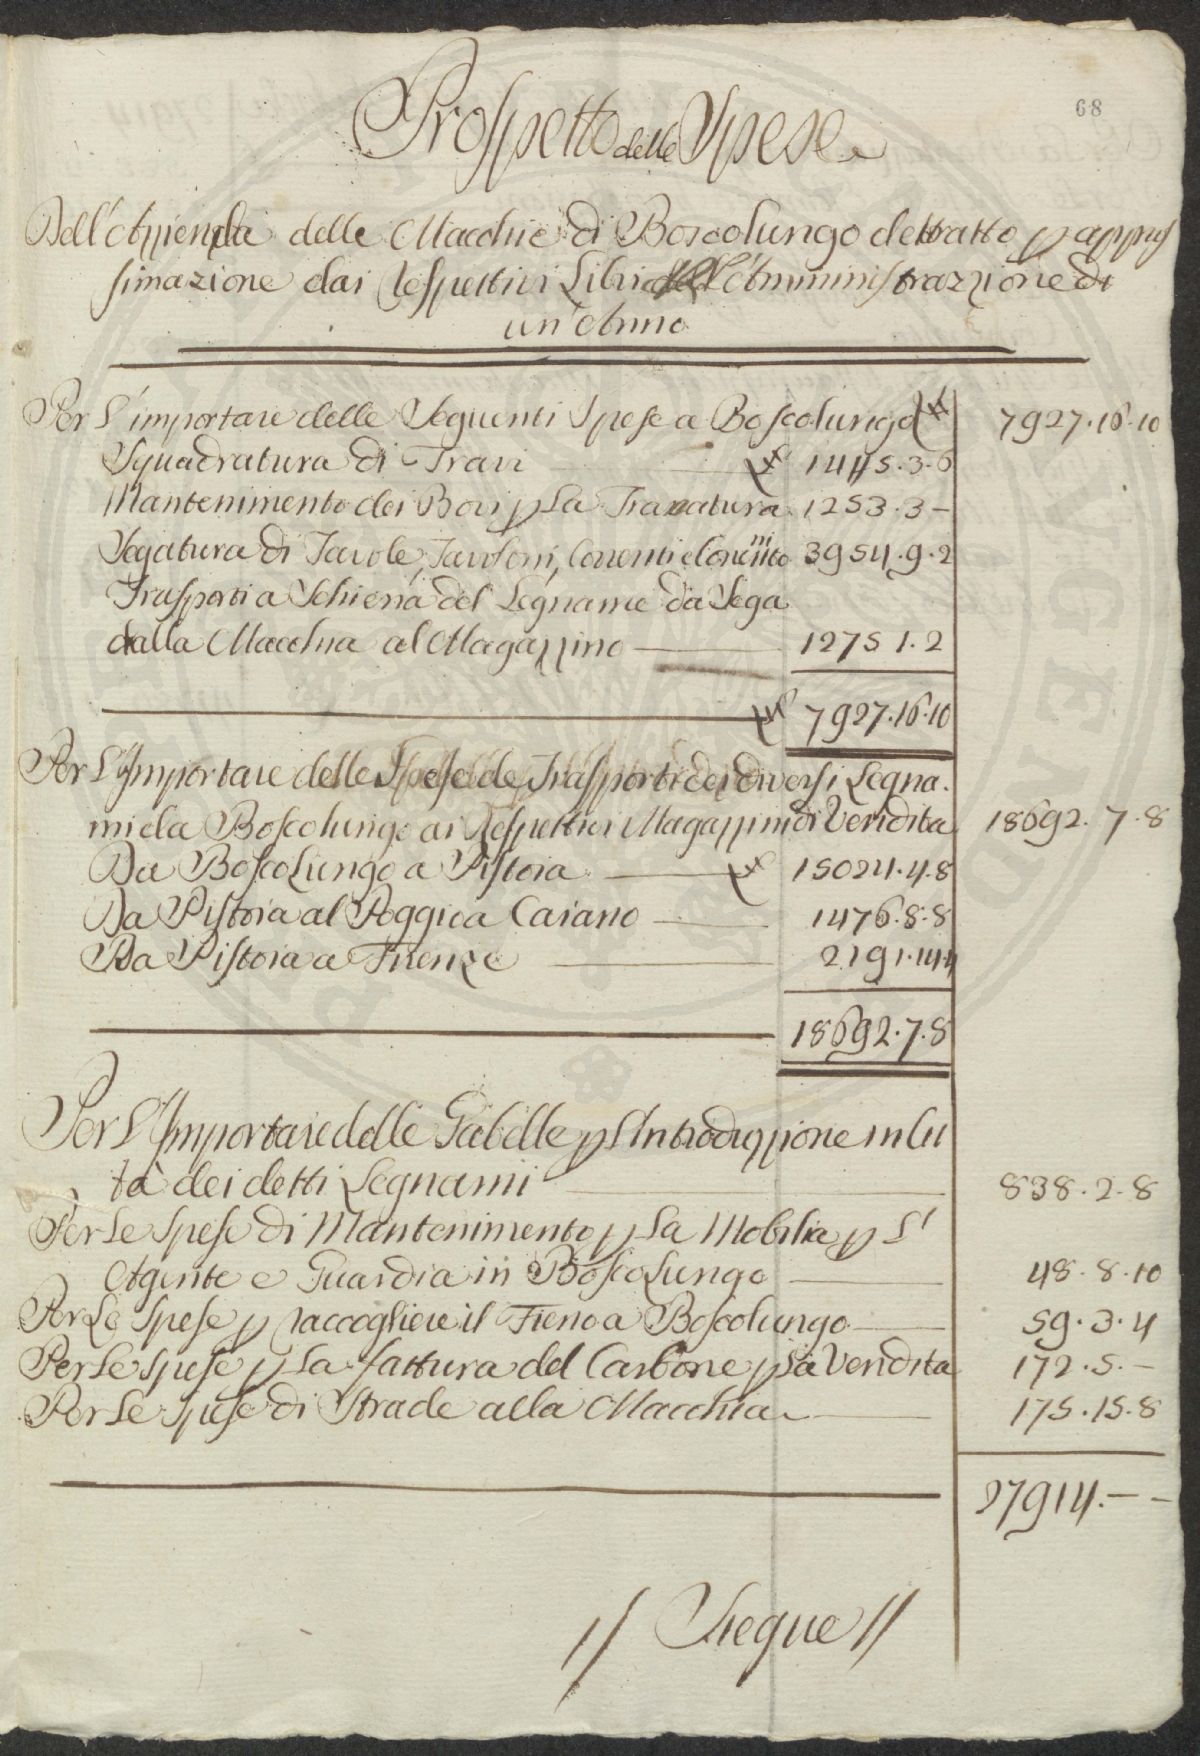 68
Prospetto delle Spese
Dell'Azienda delle Macchie di Boscolungo detratto p appros
simazione dai respettivi Libri dell'Amministrazzione di
un'Anno
Per L'importare delle Seguenti Spese a Boscolungo £ 7927.16.10
Squadratura di Travi £ 1445.3.6
Mantenimento dei Bovi p La Travatura 1253.3-
Segatura di Tavole, Tavoloni, Correnti e Correntto 3954.9.2
Trasporti a Schiena del Legname da Sega
dalla Macchia al Magazzino 1275 1.2
£ 7927.16.10
Per L'Importare delle Spese de Trasporti dei diversi Legna.
mi da Boscolungo ai Respettivi Magazzini di Vendita 18692.7.8
Da BoscoLungo a Pistoia £ 15024.4.8
Da Pistoia al Poggio a Caiano 1476.8.8
Da Pistoia a Firenze 2191.14.4
18692.7.8
Per L'Importare delle Gabelle p L'Introduzzione in Cit
tà dei detti Legnami 838.2.8
Per Le Spese di Mantenimento p La Mobilia p L'
Agente e Guardia in BoscoLungo 48.8.10
Per Le Spese p raccogliere il Fieno a Boscolungo 59.3.4
Per Le Spese p La fattura del Carbone p La Vendita 172.5.-
Per Le Spese di Strade alla Macchia 175.15.8
27914.- -
// Siegue //